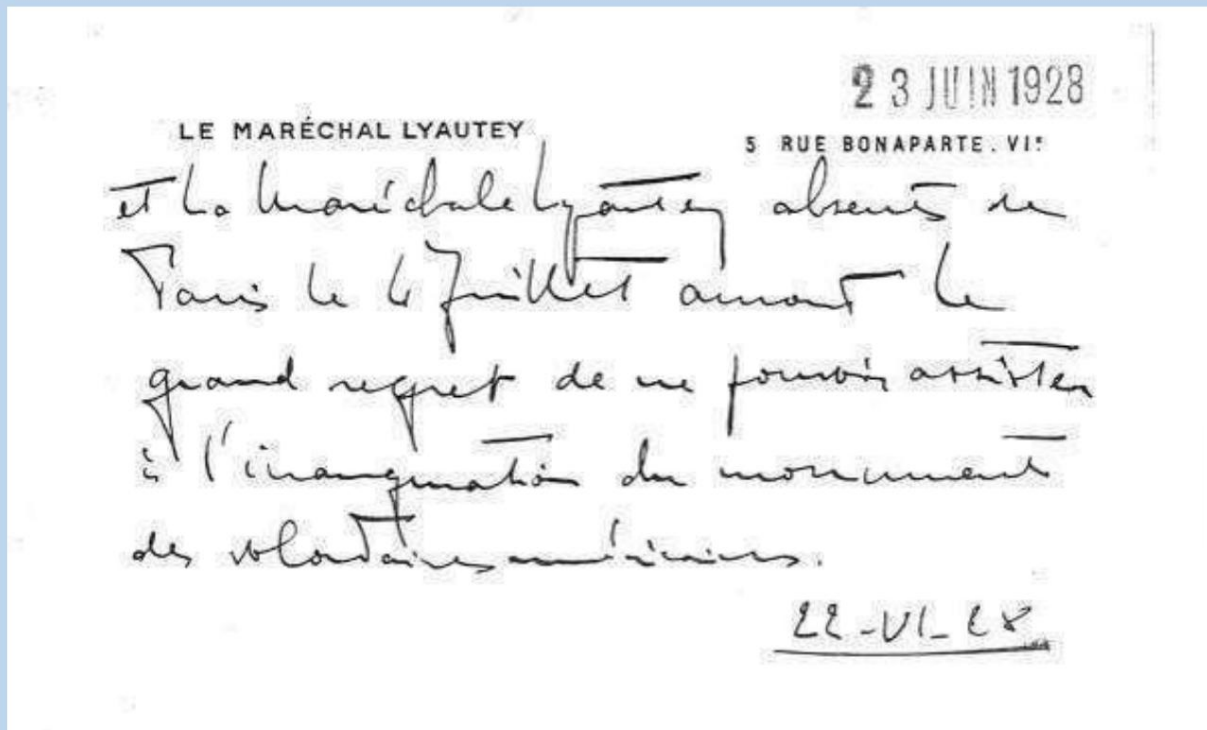 23 JUIN 1928
LE MARÉCHAL LYAUTEY
5 RUE BONAPARTE. VIe
et la Maréchale Lyautey absents de
Paris le 4 Juillet auront le
grand regret de ne pouvoir assister
à l'inauguration du monument
des volontaires américains.
22-VI-28